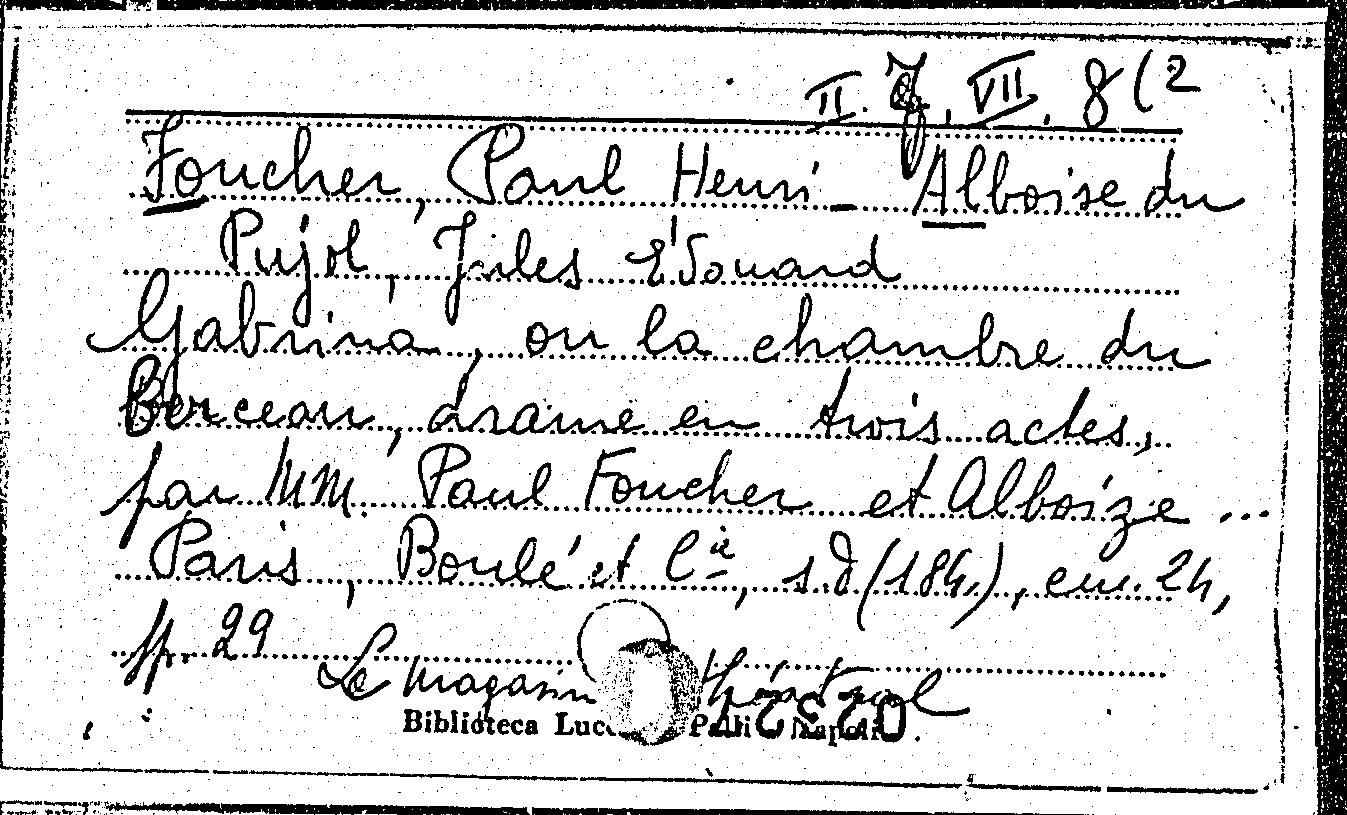 II. J. VII. 8(2
Foucher, Paul Henri - Alboise du
Pujol, Jules Edouard
Gabrina, ou la chambre du
Berceau, drame en trois actes,
par MM. Paul Foucher et Alboize ...
Paris, Boulé et Cie, s.d (184.), cm. 24,
pp. 29
Le magasin théatral
Biblioteca Lucc Palli Napoli